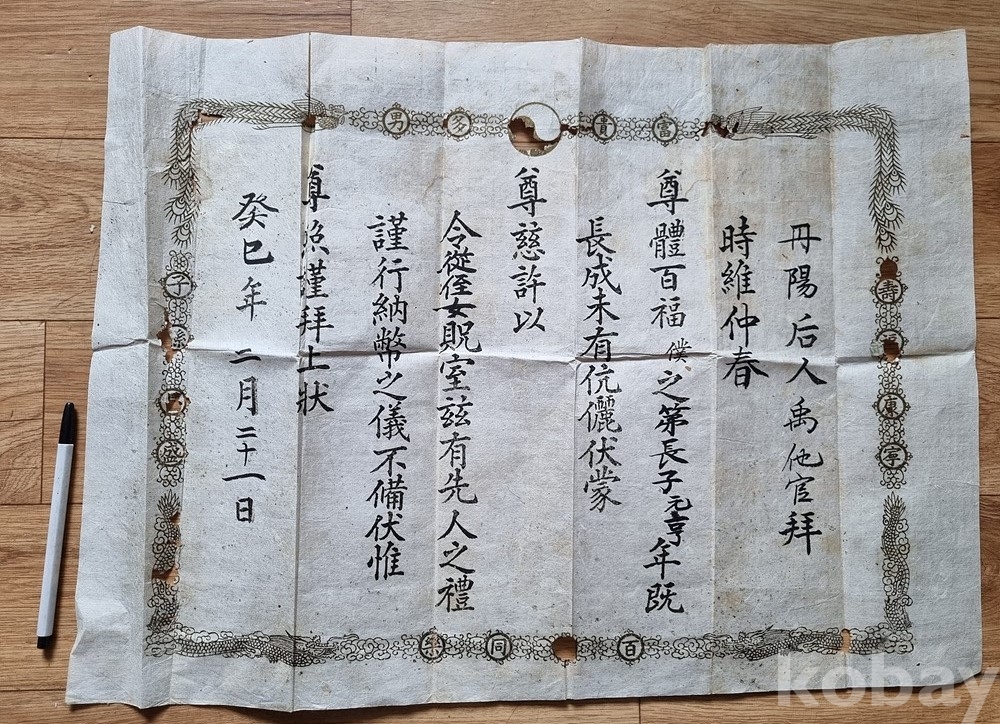 富貴多男
壽康寧
子孫盛
百同樂
丹陽后人禹他官拜
時維仲春
尊體百福 僕之第長子元亨年既
長成未有伉儷伏蒙
尊慈許以
令從侄女貺室玆有先人之禮
謹行納幣之儀不備伏惟
尊照謹拜上狀
癸巳年 二月二十一日
kobay